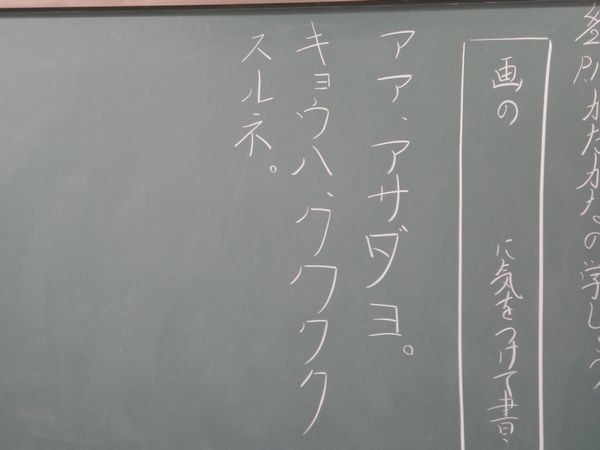 かたかなの学し
画の　　に気をつけて書
アア、アサダヨ。
キョウハ、ククククク
スルネ。